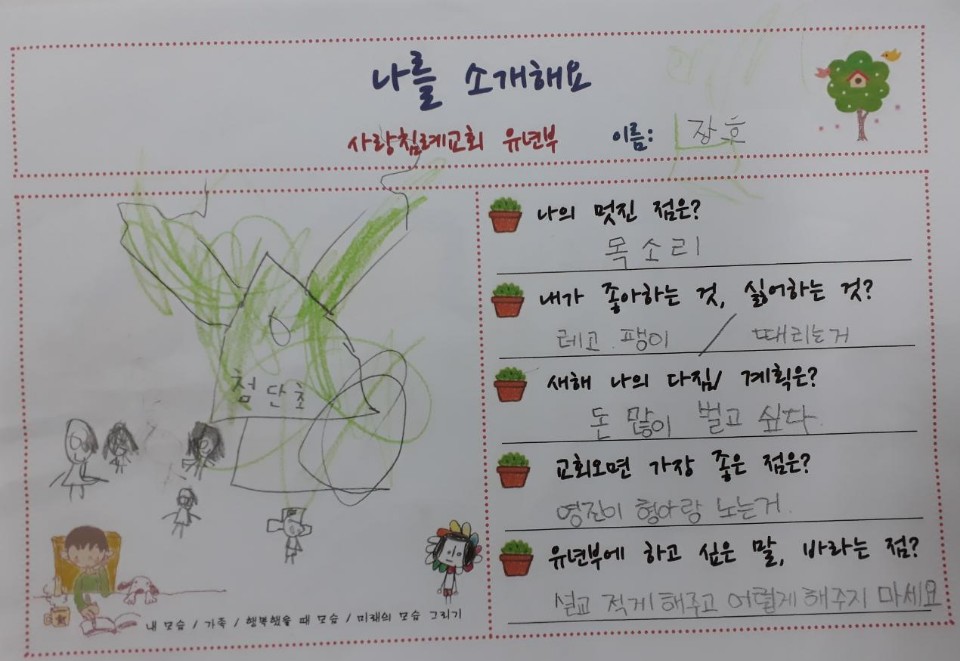 나를 소개해요
사랑침례교회 유년부 이름: 장호
첨단초
내 모습 / 가족 / 행복했을 때 모습 / 미래의 모습 그리기
나의 멋진 점은?
목소리
내가 좋아하는 것, 싫어하는 것?
레고 팽이 / 때리는거
새해 나의 다짐/ 계획은?
돈 많이 벌고 싶다.
교회오면 가장 좋은 점은?
영진이 형아랑 노는거.
유년부에 하고 싶은 말, 바라는 점?
설교 적게 해주고 어렵게 해주지 마세요